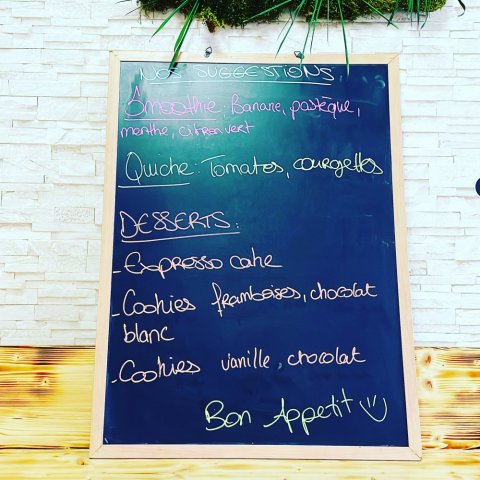 NOS SUGGESTIONS
Smoothie: Banane, pastèque,
menthe, citron vert
Quiche: Tomates, courgettes
DESSERTS:
- Expresso cake
- Cookies framboises, chocolat
blanc
- Cookies vanille, chocolat
Bon Appetit